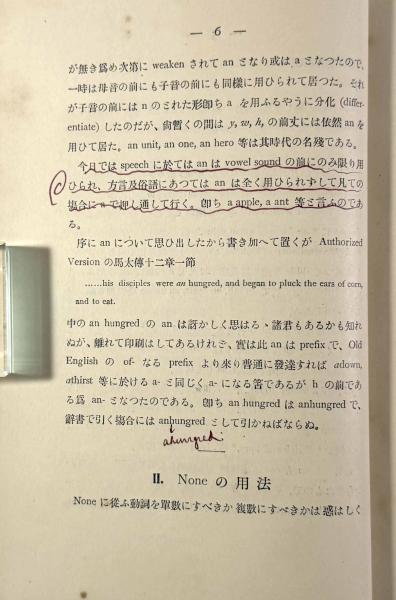 — 6 —
が無き爲め次第に weaken されて an となり或は a となつたので、
一時は母音の前にも子音の前にも同樣に用ひられて居つた。それ
が子音の前には n のとれた形卽ち a を用ふるやうに分化 (differ-
entiate) したのだが、尙暫くの間は y, w, h, の前丈には依然 an を
用ひて居た。an unit, an one, an hero 等は其時代の名殘である。
今日では speech に於ては an は vowel sound の前にのみ限り用
ひられ、方言及俗語にあつては an は全く用ひられずして凡ての
場合に a で押し通して行く。卽ち a apple, a ant 等と言ふのであ
る。
序に an について思ひ出したから書き加へて置くが Authorized
Version の馬太傳十二章一節
……his disciples were an hungred, and began to pluck the ears of corn,
and to eat.
中の an hungred の an は訝かしく思はる丶諸君もあるかも知れ
ぬが、離れて印刷はしてあるけれど、實は此 an は prefix で、Old
English の of- なる prefix より來り普通に發達すれば adown,
athirst 等に於ける a- と同じく a- になる筈であるが h の前であ
る爲 an- となつたのである。卽ち an hungred は anhungred で、
辭書で引く場合には anhungred として引かねばならぬ。
ahungred
II. None の用法
None に從ふ動詞を單數にすべきか複數にすべきかは惑はしく